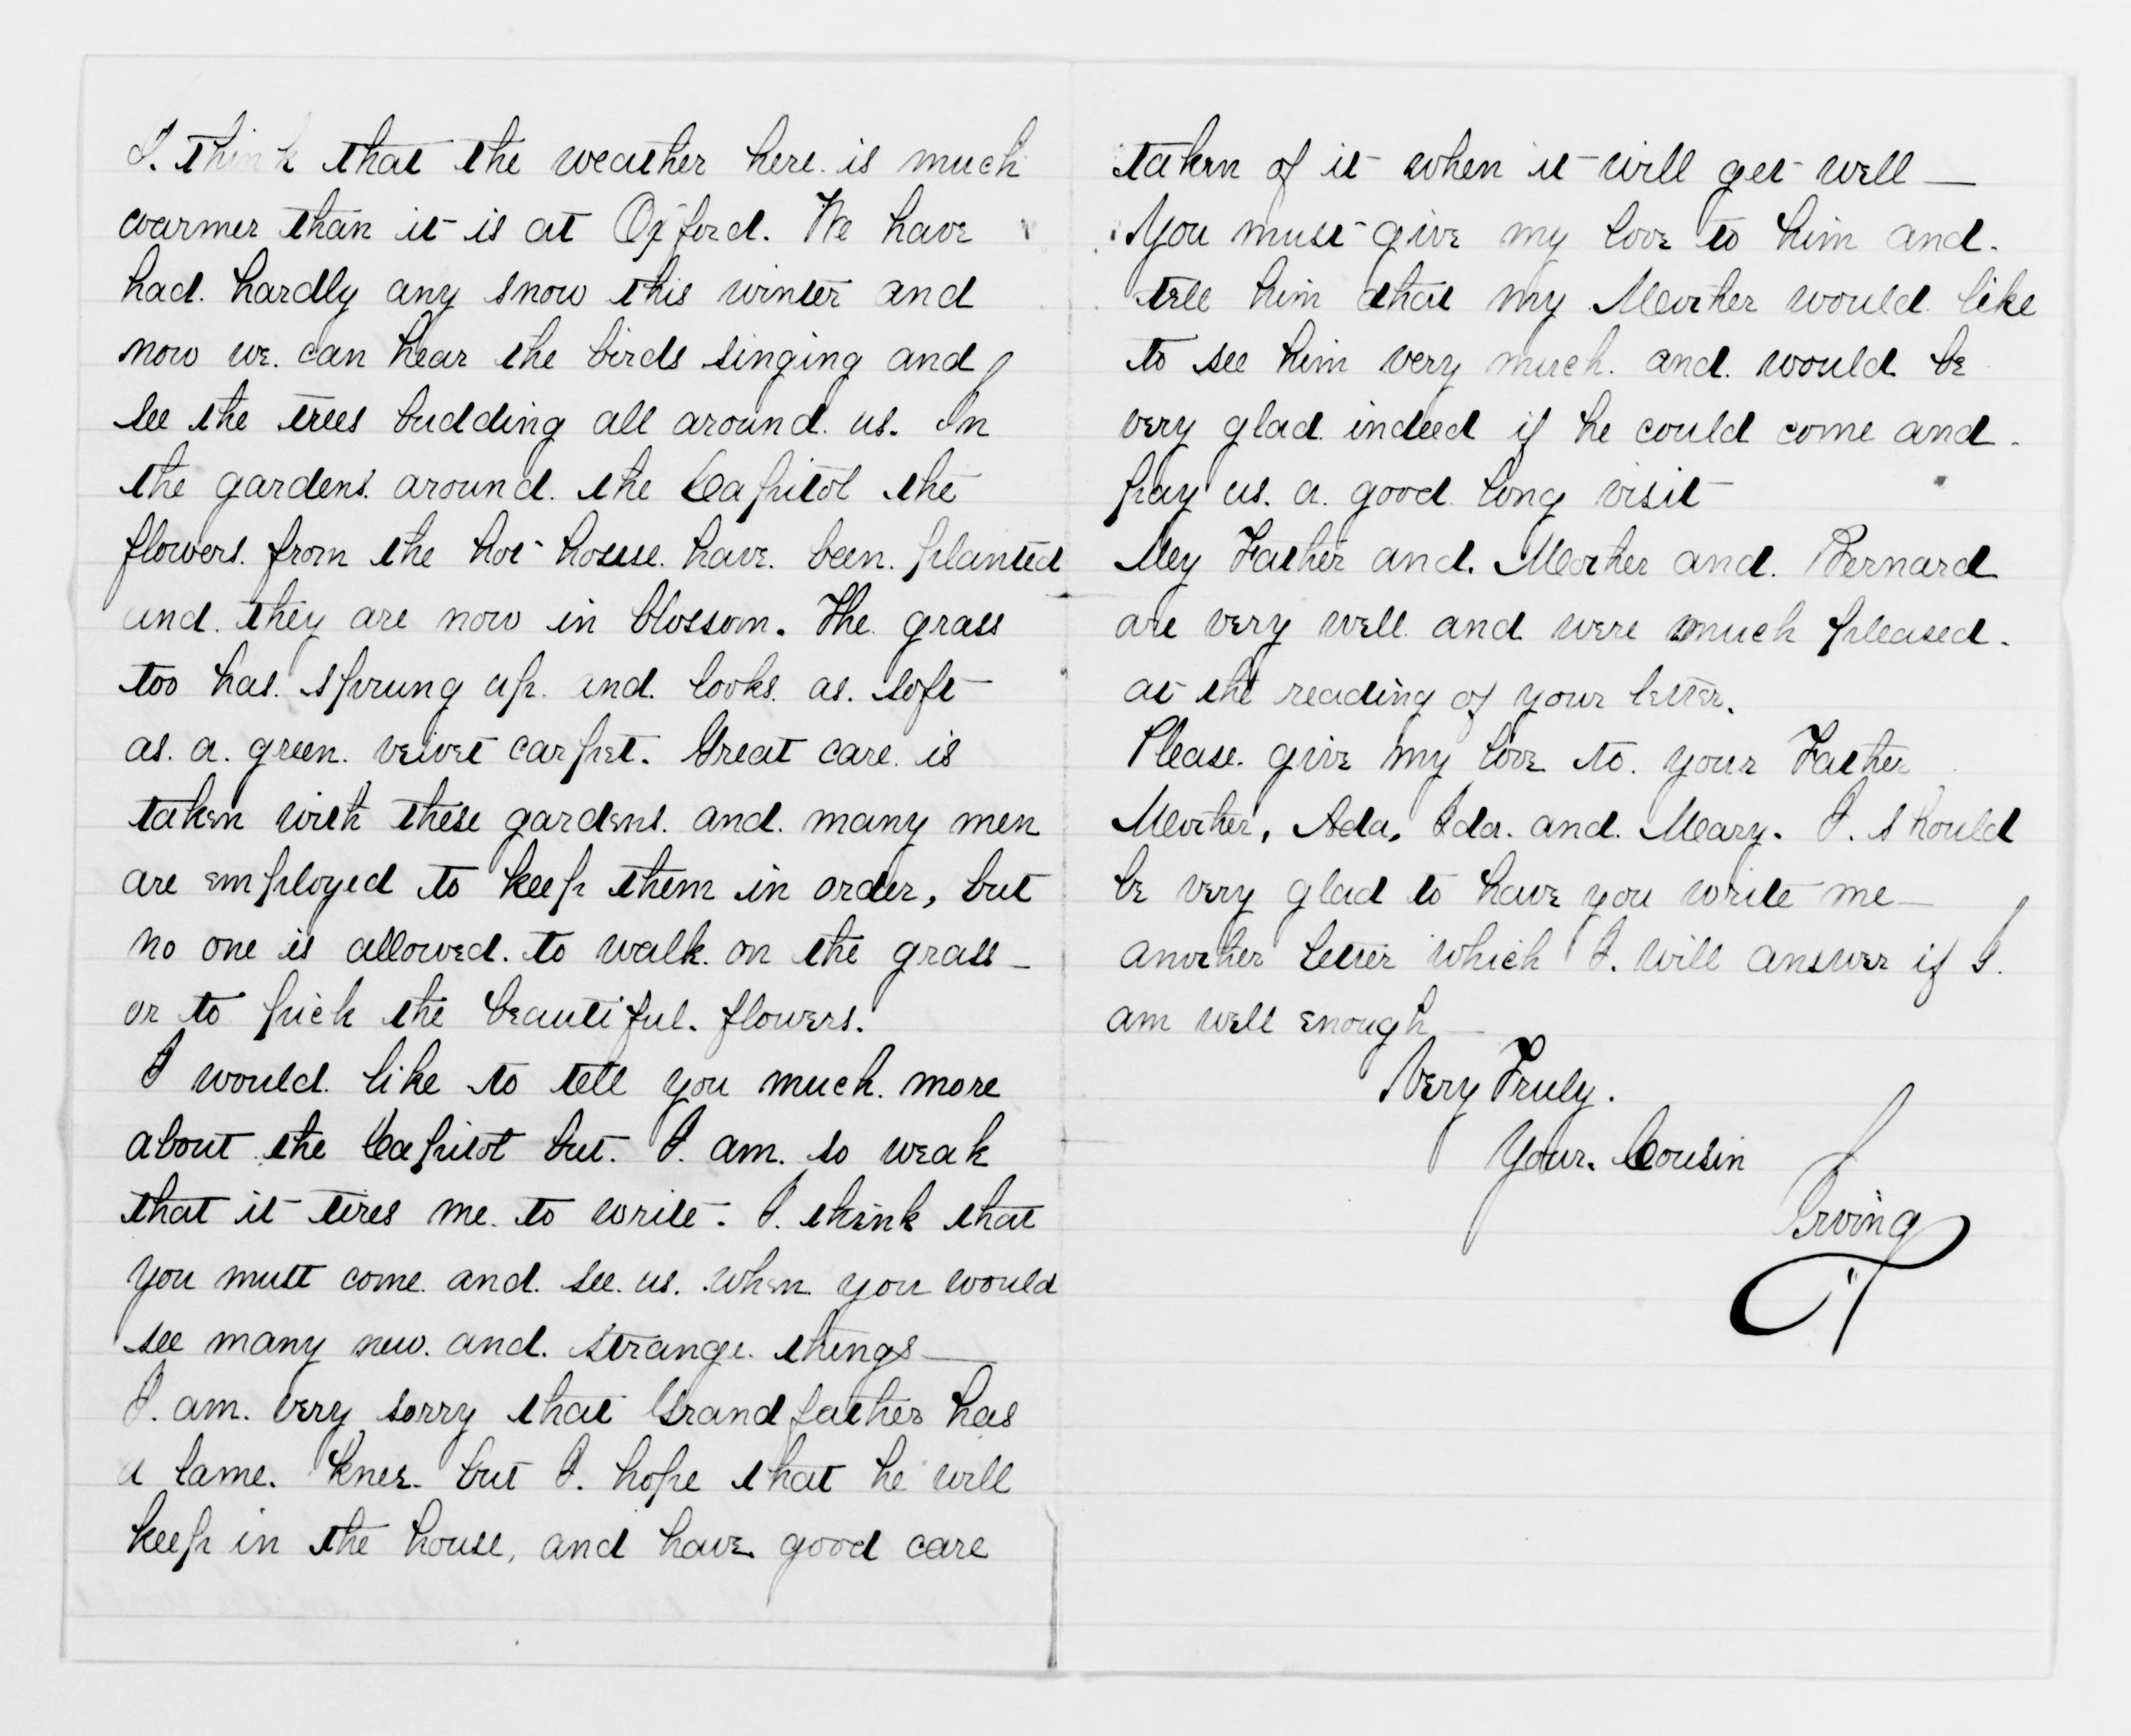 I. think that the weather here. is much
warmer than it is at Oxford. We have
had. hardly any snow this winter and
now we. can hear the birds singing and
see the trees budding all around. us. In
the gardens. around. the Capitol the
flowers. from the hot-house. have. been. planted
and. they are now in blossom. The. grass
too has. sprung up. and. looks. as. soft
as. a. green. velvet carpet. Great care. is
taken with these gardens. and. many men
are employed to keep them in order, but
no one is allowed. to walk. on the grass
or to pick the beautiful. flowers.
I would. like to tell you much. more
about the Capitol but. I. am. so weak
that it tires me. to write. I. think that
you must come. and. see. us. when. you would
see many new. and. strange. things
I. am. very sorry that Grandfather has
a lame. knee. but I. hope that he will
keep in the house, and have good care
taken of it when it will get well
You must give my love to him and.
tell him that my Mother would. like
to see him very much. and. would be
very glad. indeed if he could come and.
pay us. a. good. long visit
My Father and. Mother and. Bernard
are very well. and were much pleased.
at the reading of your letter.
Please. give my love to. your Father
Mother, Ada, Ida. and. Mary. I. should
be very glad to have you write me
another letter which I. will answer if I.
am well enough
Very Truly.
Your. Cousin
Irving